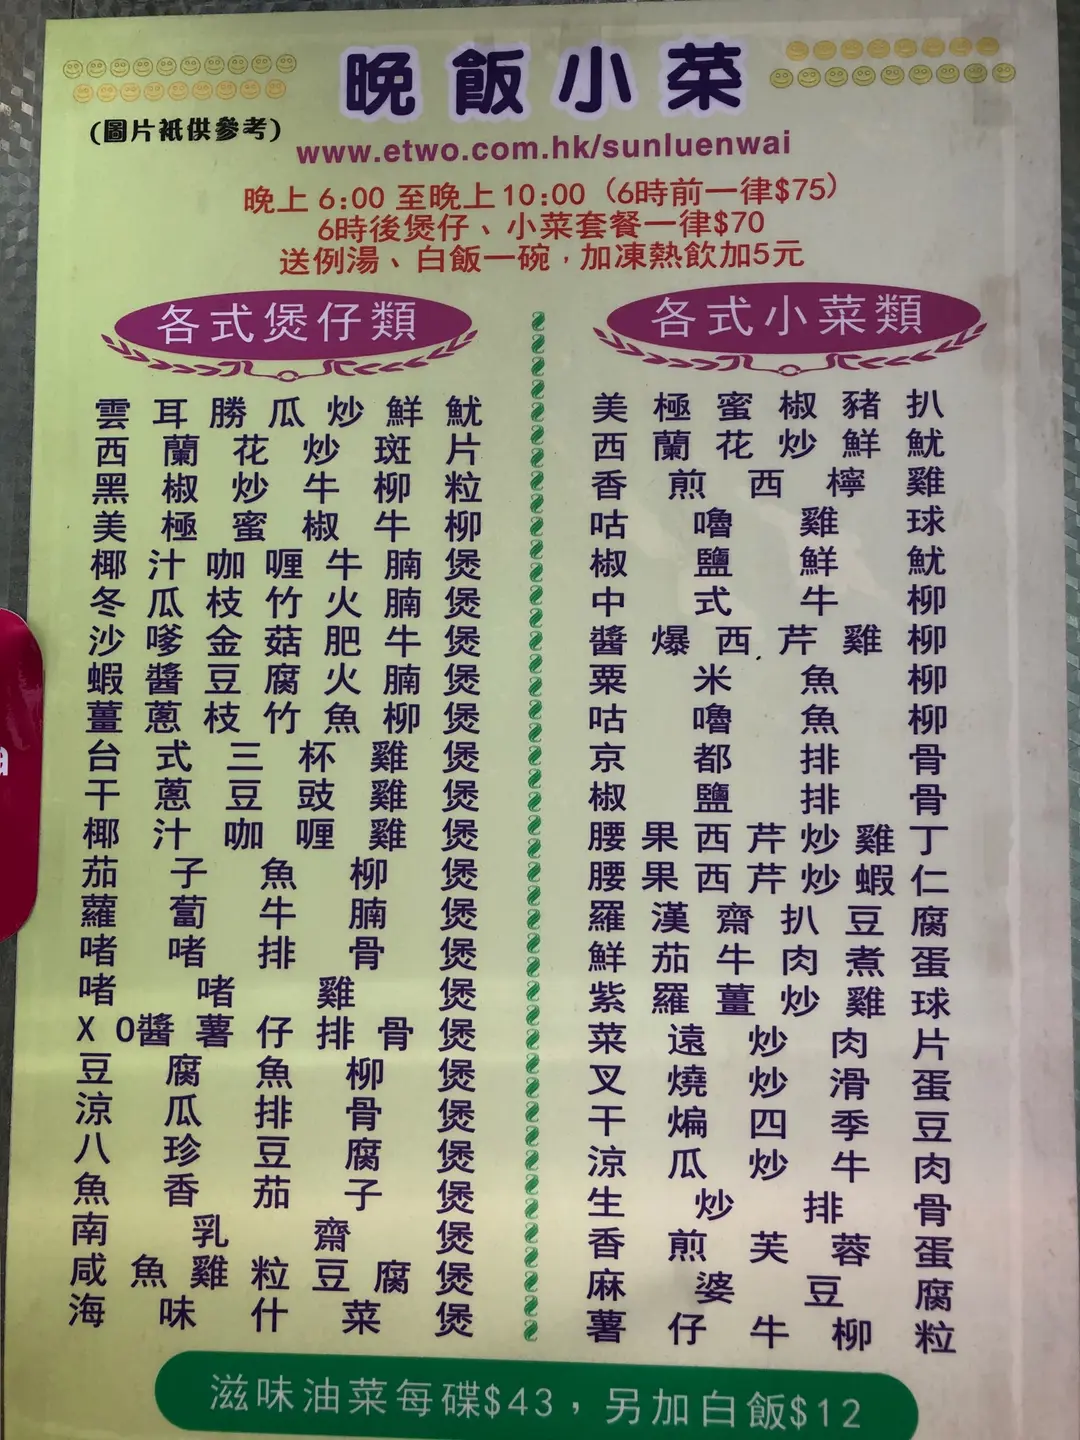 晚飯小菜
(圖片祗供參考)
www.etwo.com.hk/sunluenwai
晚上 6:00 至晚上 10:00（6時前一律$75）
6時後煲仔、小菜套餐一律$70
送例湯、白飯一碗，加凍熱飲加5元
各式煲仔類
雲耳勝瓜炒鮮魷
西蘭花炒斑片
黑椒炒牛柳粒
美極蜜椒牛柳
椰汁咖喱牛腩煲
冬瓜枝竹火腩煲
沙嗲金菇肥牛煲
蝦醬豆腐火腩煲
薑蔥枝竹魚柳煲
台式三杯雞煲
干蔥豆豉雞煲
椰汁咖喱雞煲
茄子魚柳煲
蘿蔔牛腩煲
啫啫排骨煲
啫啫雞煲
XO醬薯仔排骨煲
豆腐魚柳煲
涼瓜排骨煲
八珍豆腐煲
魚香茄子煲
南乳齋煲
咸魚雞粒豆腐煲
海味什菜煲
各式小菜類
美極蜜椒豬扒
西蘭花炒鮮魷
香煎西檸雞
咕嚕雞球
椒鹽鮮魷
中式牛柳
醬爆西芹雞柳
粟米魚柳
咕嚕魚柳
京都排骨
椒鹽排骨
腰果西芹炒雞丁
腰果西芹炒蝦仁
羅漢齋扒豆腐
鮮茄牛肉煮蛋
紫羅薑炒雞球
菜遠炒肉片
叉燒炒滑蛋
干煸四季豆
涼瓜炒牛肉
生炒排骨
香煎芙蓉蛋
麻婆豆腐
薯仔牛柳粒
滋味油菜每碟$43，另加白飯$12
a